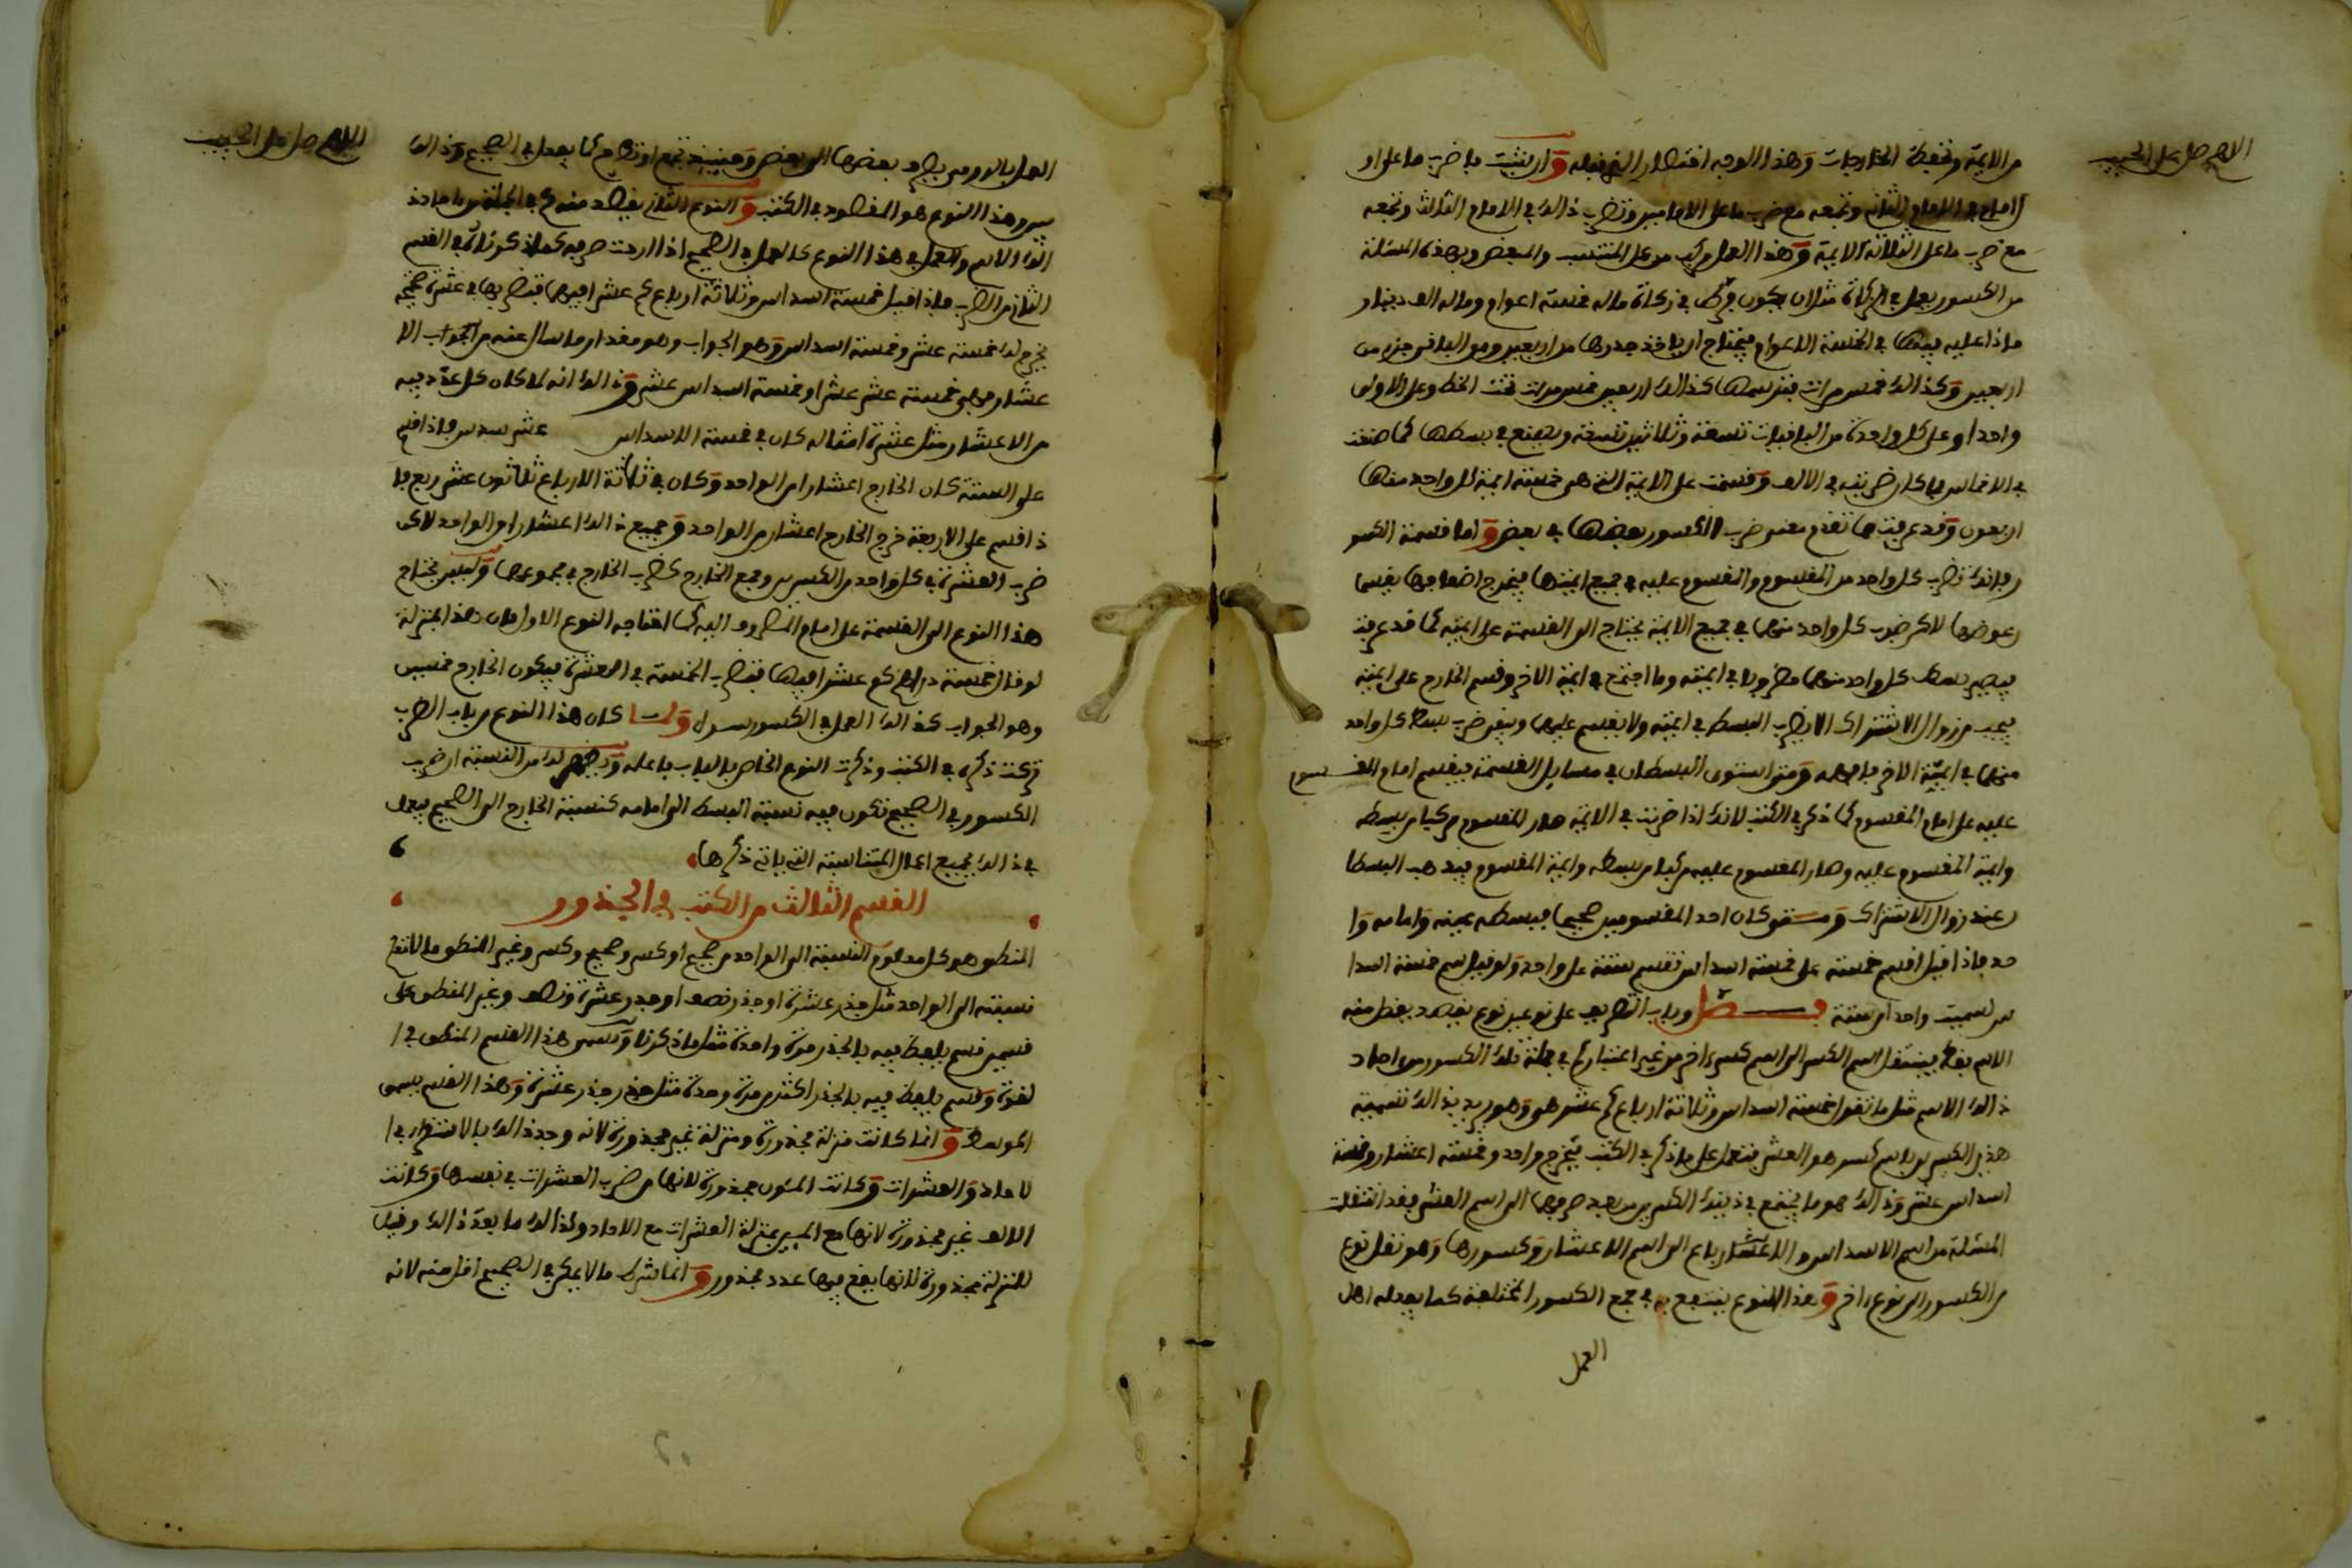 اللهم صل على الحبيب
من الايمة وتحفظ الخارجات وهذا الوجه اختصار الذي قبله وان شئت فاضرب ما على ا
لامام في الامام الثاني وتجمعه مع ضرب ما على الامامين وتضرب ذالك في الامام الثالث وتجمعه
مع ضرب ما على الثلاثة الايمة وهذا العمل مركب من عمل المنتسب والمبعض وبهذه المسئلة
من الكسور يعمل في الزكاة مثل ان يكون فرط في زكاة ماله خمسة اعوام وماله الف دينار
ماذا عليه فيها في الخمسة الاعوام فيحتاج ان ياخذ جذرها من اربعين ومن الباقي جزء من
اربعين وكذالك خمس مرات فترسمها كذالك اربعين خمس مرات تحت الخط وعلى الاولى
واحدا وعلى كل واحدة من الباقيات تسعة وثلاثين تسعة ويصنع في بسطها كما صنعت
في الاخماس فما كان ضربته في الالف وقسمت على الايمة التي هي خمسة ايمة كل واحد منها
اربعون وقد عرفت مما تقدم معنى ضرب الكسور بعضها في بعض واما قسمة الكسو
ر فانك تضرب كل واحد من المقسوم والمقسوم عليه في جميع ايمتها فيخرج اضعافها يقسما
ن عوضها لاكن ضرب كل واحد منهما في جميع الايمة يحتاج الى القسمة على ايمته كما قد عرفت
فيصير بسط كل واحد منهما مضروبا في ايمته وما اجتمع في ايمة الاخر وقسم الخارج على ايمته
فيجب من زوال الاشتراك الا يضرب البسط في ايمته ولا يقسم عليها ويبقى ضرب بسط كل واحد
منهما في ايمة الاخر فافهمه ومتى استوى البسطان في مسايل القسمة فيقسم امام المقسوم
عليه على امام المقسوم كما ذكر في الكتب لانك اذا ضربت في الايمة صار المقسوم مركبا من بسطه
وايمة المقسوم عليه وصار المقسوم عليه مركبا من بسطه وايمة المقسوم فيذهب البسطا
ن عند زوال الاشتراك ومتى كان احد المقسومين صحيحا فبسطه عينه وامامه وا
حد فاذا قيل اقسم خمسة على خمسة اسداس تقسم ستة على واحد ولو قيل سم خمسة اسدا
س لسميت واحدا من ستة فصل وباب التصريف على نوعين نوع يقصد بفصل منه
الاسم بقط فينتقل اسم الكسر الى اسم كسر اخر من غير اعتبار كم في جملة تلك الكسور من احاد
ذالك الاسم مثل ما تقول خمسة اسداس وثلاثة ارباع كم عشر هو وهو يريد بذالك تسمية
هذين الكسرين باسم كسر هو العشر فتعمل على ما ذكر في الكتب فيخرج واحد وخمسة اعشار وخمسة
اسداس عشر وذالك هو ما يجتمع في ذينك الكسرين بعد صرفهما الى اسم العشر فقد انتقلت
المسئلة من اسم الاسداس والارباع الى اسم الاعشار وكسورها وهو نقل نوع
من الكسور الى نوع اخر وهذا النوع ينتفع به في جمع الكسور المختلفة كما يعمله اهل
العمل
اللهم صل على الحبيب
العمل بالدور من بعضها الى بعض وحينيذ تجمع او تطرح كما يعمل في الصحيح وذالك
سر وهذا النوع هو المقصود في الكتب والنوع الثاني يقصد منه كم في الجملتين من احاد
ذالك الاسم والعمل في هذا النوع كالعمل في الصحيح اذا اردت صرفه كما ذكرناه في القسم
الثاني من الضرب فاذا قيل خمسة اسداس وثلاثة ارباع كم عشر فيها فتضربها في عشرة فتجمع
يخرج لك خمسة عشر وخمسة اسداس وهو الجواب وهو مقدار ما سال عنه من الجواب الا
عشار وهي خمسة عشر عشرا وخمسة اسداس عشر وذالك انه لما كان كل عدد فيه
من الاعشار مثل عشرة امثاله كان في خمسة الاسداس عشر سدس فاذا قسم
على الستة كان الخارج اعشارا من الواحد وكان في ثلاثة الارباع ثلاثون عشر ربع فا
ذا قسم على الاربعة خرج الخارج اعشار من الواحد وجميع ذالك اعشار من الواحد لاكن
ضرب العشرة في كل واحد من الكسرين وجمع الخارج كضرب الخارج في مجموعهما وليس يحتاج
هذا النوع الى القسمة على امام المصروف اليه كما احتاجه النوع الاول فان هذا بمنزلة
لو قال خمسة دراهم كم عشرا فيها فتضرب الخمسة في العشرة فيكون الخارج خمسين
وهو الجواب كذالك العمل في الكسور سوا ولما كان هذا النوع من باب الضرب
تركت ذكره في الكتب وذكرت النوع الخاص بالباب فاعلمه ويخرج لك من القسمة ان ضرب
الكسور في الصحيح تكون فيه نسبة البسط الى امامه كنسبة الخارج الى الصحيح فيعمل
في ذالك بجميع اعمال المتناسبة التي ياتي ذكرها
القسم الثالث من الكتب في الجذور
المنطق هو كل معلوم النسبة الى الواحد من صحيح او كسر وصحيح وكسر وغير المنطق ما لا تعلم
نسبته الى الواحد مثل جذر عشرة او جذر نصف او جذر عشرة ونصف وغير المنطق على
قسمين قسم يلفظ فيه بالجذر مرة واحدة مثل ما ذكرنا ويسمى هذا القسم المنطق في ا
لقوة وقسم يلفظ فيه بالجذر اكثر من مرة واحدة مثل جذر جذر عشرة وهذا القسم يسمى
الموسط وانما كانت منزلة مجذورة ومنزلة غير مجذورة لانه وجد ذالك بالاستقراء في ا
لاحاد والعشرات وكانت المئون مجذورة لانها من ضرب العشرات في نفسها وكانت
الالف غير مجذورة لانها مع الميين بمنزلة العشرات مع الاحاد وكذالك ما بعد ذالك وقيل
للمنزلة مجذورة لانها يقع فيها عدد مجذور وانما شرط ما لا يمكن في الصحيح اقل منه لانه